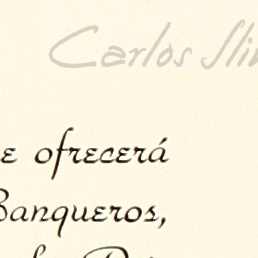 Carlos Slim
e ofrecerá
Banqueros,